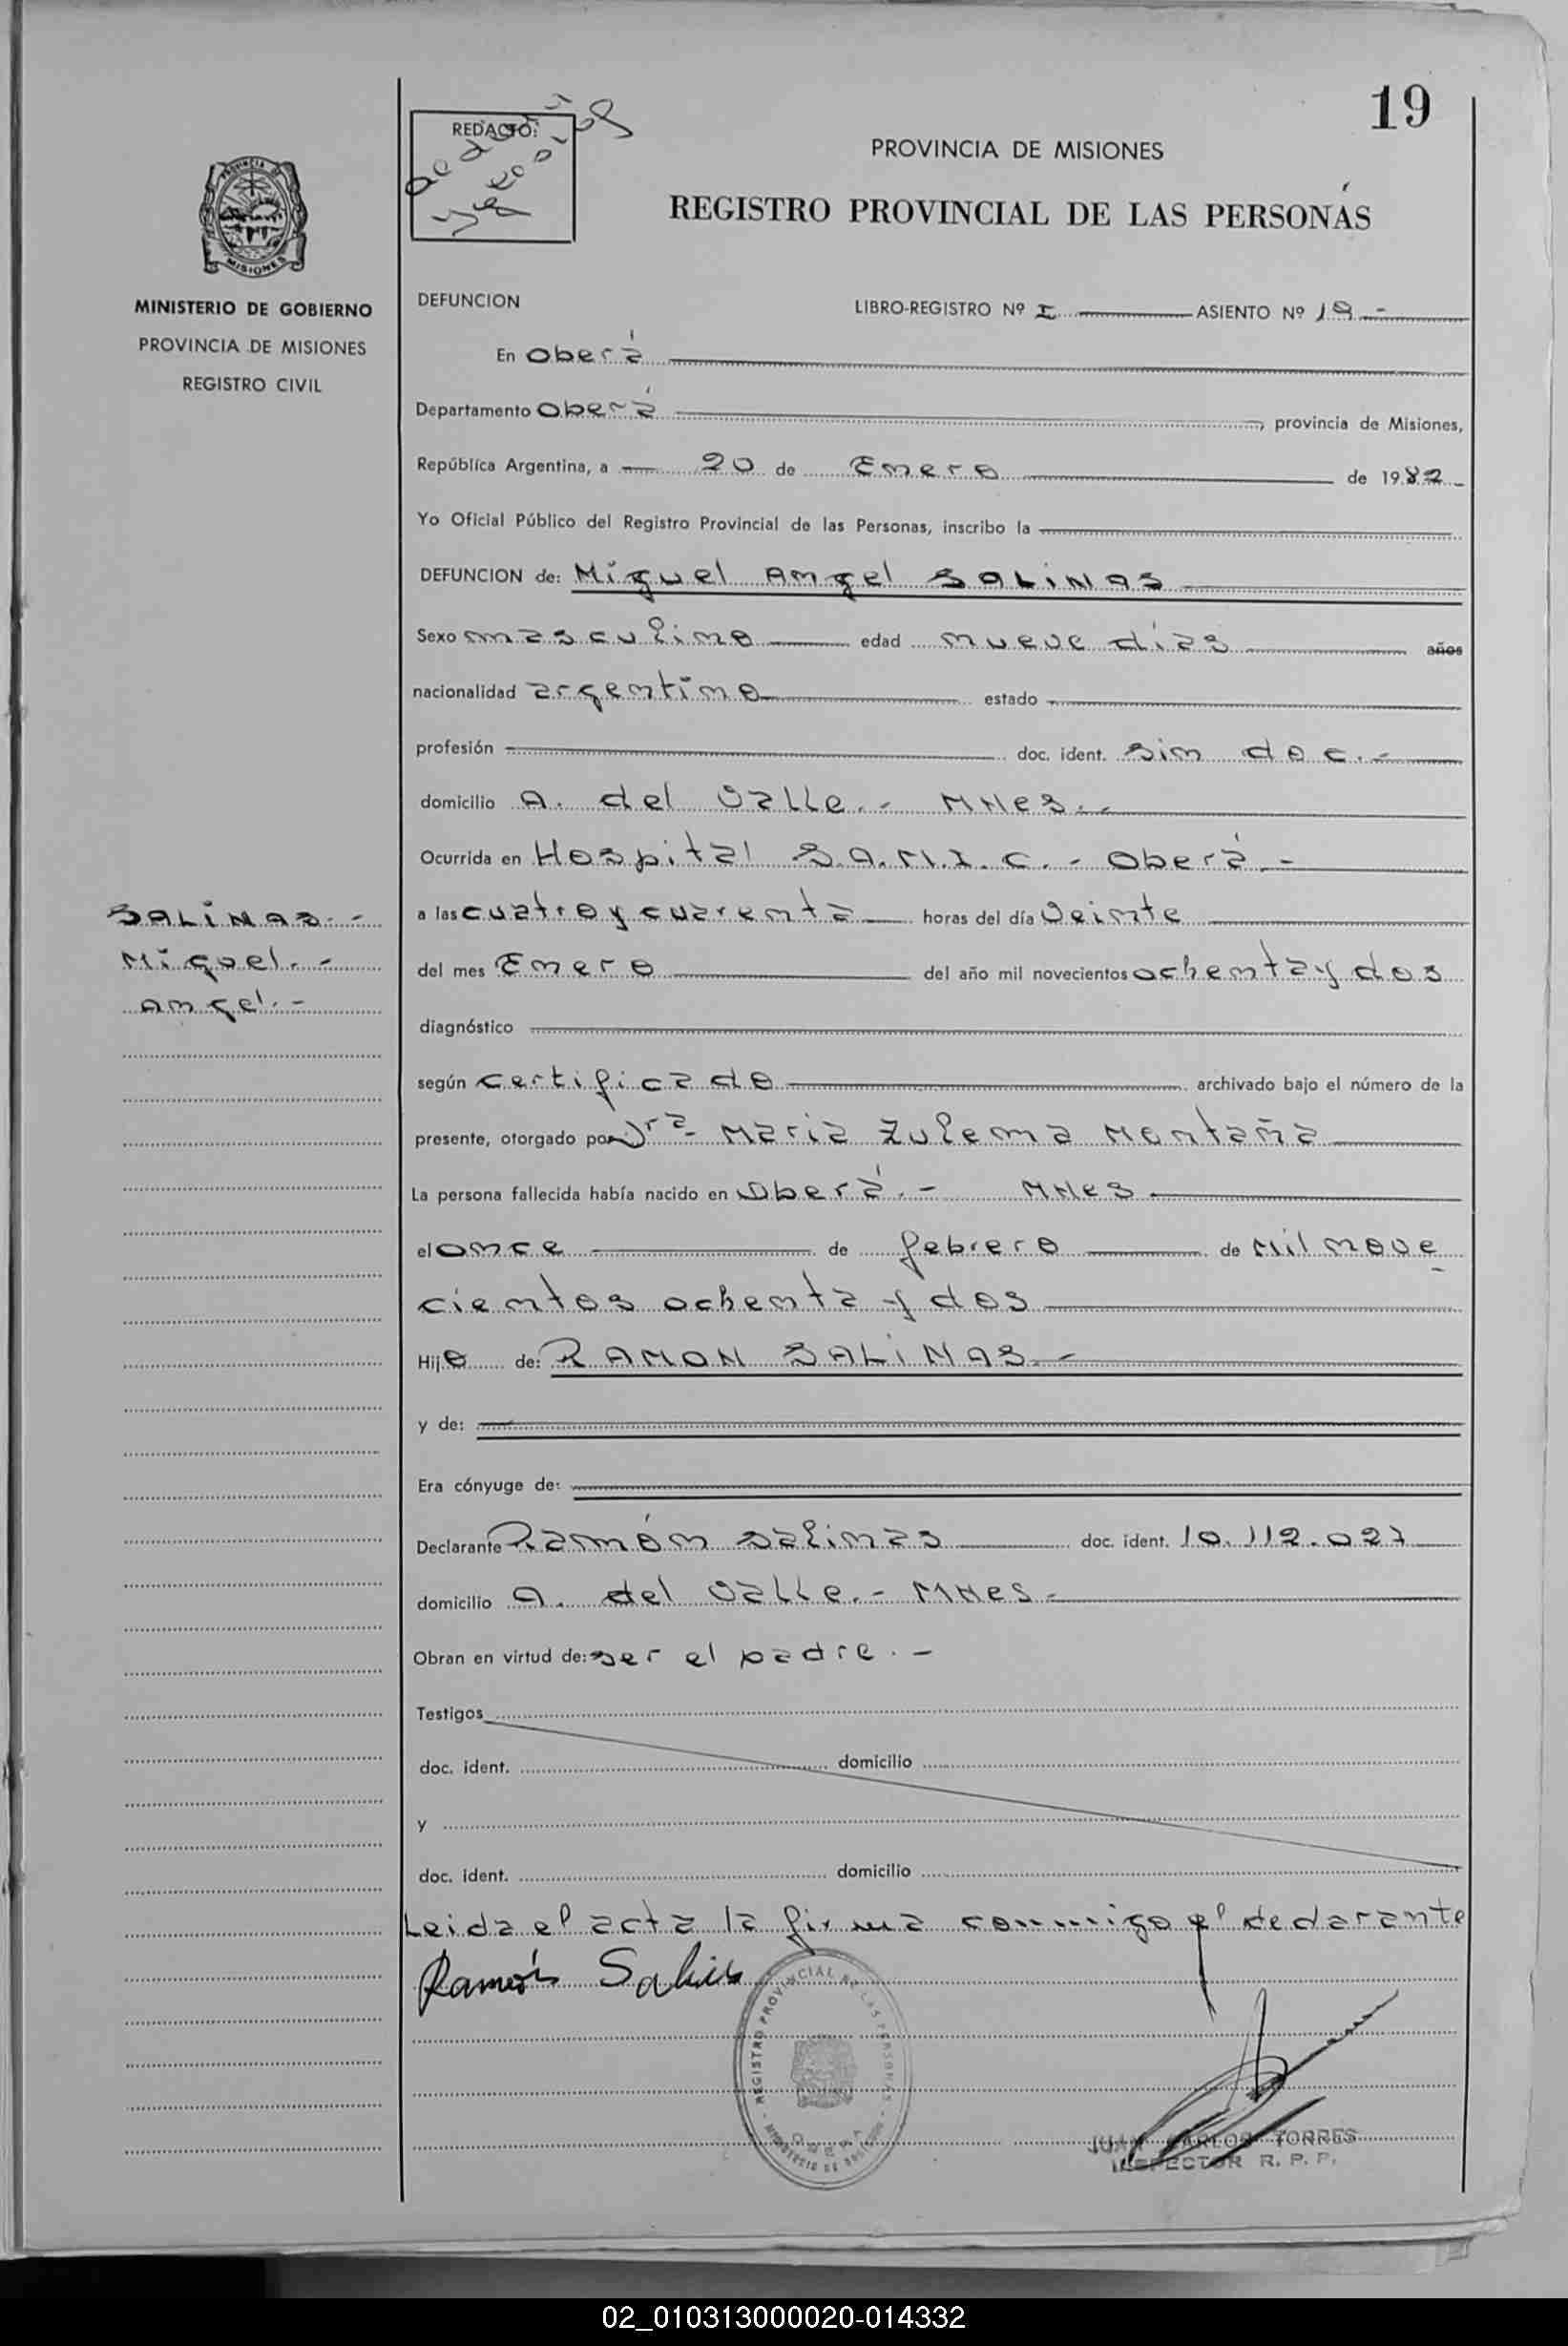 19
REDACTO:
PROVINCIA DE MISIONES
REGISTRO PROVINCIAL DE LAS PERSONAS
PROVINCIA DE
MISIONES
MINISTERIO DE GOBIERNO
PROVINCIA DE MISIONES
REGISTRO CIVIL
DEFUNCION LIBRO-REGISTRO Nº I ASIENTO Nº 19 -
En Oberá
Departamento Oberá, provincia de Misiones,
República Argentina, a 20 de Enero de 1982
Yo Oficial Público del Registro Provincial de las Personas, inscribo la
DEFUNCION de: Miguel Angel SALINAS
Sexo masculino edad nueve días años
nacionalidad argentino estado
profesión doc. ident. sin doc. -
domicilio A. del Valle. - MNes. -
Ocurrida en Hospital S.A.M.I.C. - Oberá. -
SALINAS. -
Miguel. -
Angel. -
a las cuatro y cuarenta horas del día Veinte
del mes Enero del año mil novecientos ochenta y dos
diagnóstico
según certificado archivado bajo el número de la
presente, otorgado por Dra- Maria Zulema Montaña
La persona fallecida había nacido en Oberá. - MNes
el once de febrero de Mil nove
cientos ochenta y dos
Hijo de: RAMON SALINAS. -
y de:
Era cónyuge de:
Declarante Ramón Salinas doc. ident. 10.112.027
domicilio A. del Valle. - MNes -
Obran en virtud de: ser el padre. -
Testigos
doc. ident. domicilio
y
doc. ident. domicilio
Leida el acta la firma conmigo el declarante
Ramón Salinas
REGISTRO PROVINCIAL DE LAS PERSONAS
OBERA
MINISTERIO DE GOBIERNO
JUAN CARLOS TORRES
INSPECTOR R. P. P.
02_010313000020-014332